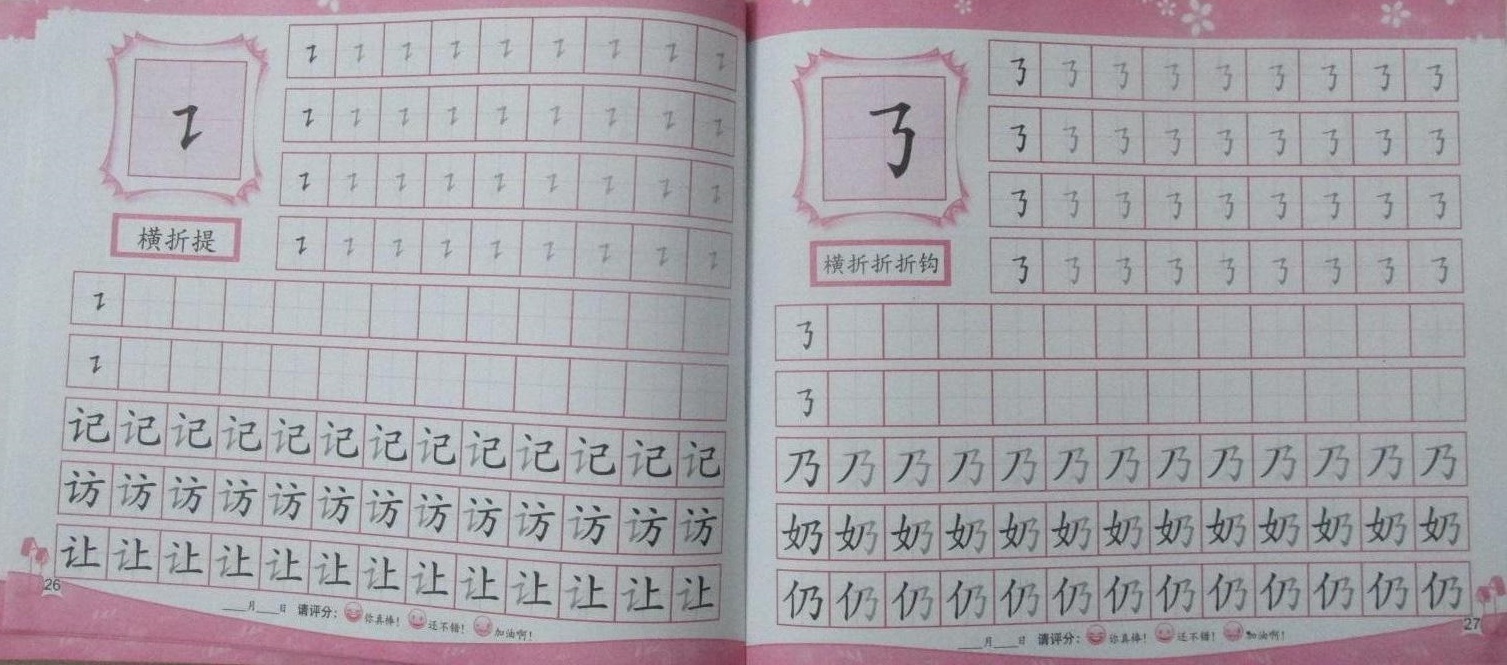 ㇊
㇊㇊㇊㇊㇊㇊㇊㇊㇊
㇊㇊㇊㇊㇊㇊㇊㇊㇊
㇊㇊㇊㇊㇊㇊㇊㇊㇊
㇊㇊㇊㇊㇊㇊㇊㇊㇊
横折提
㇊
㇊
记记记记记记记记记记记记记
访访访访访访访访访访访访访
让让让让让让让让让让让让让
26
____月____日 请评分: 你真棒! 还不错! 加油啊!
㇡
㇡㇡㇡㇡㇡㇡㇡㇡㇡
㇡㇡㇡㇡㇡㇡㇡㇡㇡
㇡㇡㇡㇡㇡㇡㇡㇡㇡
㇡㇡㇡㇡㇡㇡㇡㇡㇡
横折折折钩
㇡
㇡
乃乃乃乃乃乃乃乃乃乃乃乃乃
奶奶奶奶奶奶奶奶奶奶奶奶奶
仍仍仍仍仍仍仍仍仍仍仍仍仍
____月____日 请评分: 你真棒! 还不错! 加油啊!
27